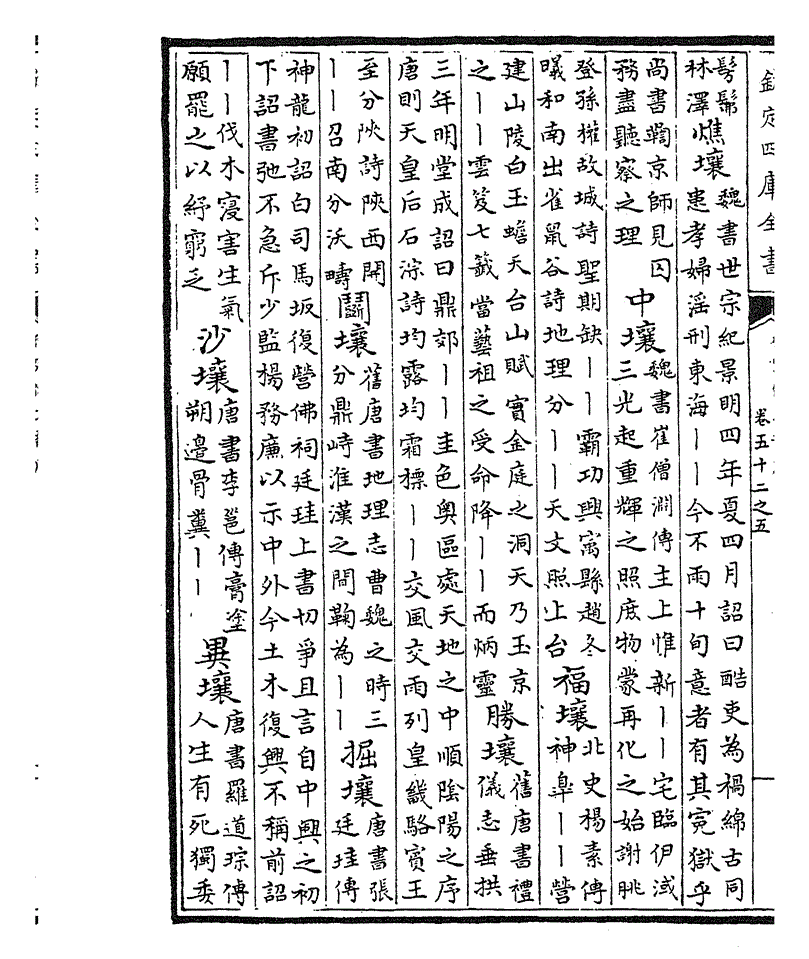 欽定四庫全書
卷五十二之五
髣髴
林澤
燋壤
魏書世宗紀景明四年夏四月詔曰酷吏為禍綿古同
患孝婦淫刑東海丨丨今不雨十旬意者有其寃獄乎
尚書鞫京師見囚
務盡聽察之理
中壤
魏書崔僧淵傳主上惟新丨丨宅臨伊域
三光起重輝之照庶物蒙再化之始謝朓
登孫權故城詩聖期缺丨丨霸功興寓縣趙冬
曦和南出雀鼠谷詩地理分丨丨天文照上台
福壤
北史楊素傳
神臯丨丨營
建山陵白玉蟾天台山賦實金庭之洞天乃玉京
之丨丨雲笈七籤當藝祖之受命降丨丨而炳靈
勝壤
舊唐書禮
儀志垂拱
三年明堂成詔曰鼎郊丨丨圭色奧區處天地之中順陰陽之序
唐則天皇后石淙詩均露均霜標丨丨交風交雨列皇畿駱賓王
至分陝詩陝西開
丨丨召南分沃疇
鬭壤
舊唐書地理志曹魏之時三
分鼎峙淮漢之間鞠為丨丨
掘壤
唐書張
廷珪傳
神龍初詔白司馬坂復營佛祠廷珪上書切爭且言自中興之初
下詔書弛不急斥少監楊務廉以示中外今土木復興不稱前詔
丨丨伐木寖害生氣
願罷之以紓窮乏
沙壤
唐書李邕傳膏塗
朔邊骨糞丨丨
異壤
唐書羅道琮傳
人生有死獨委